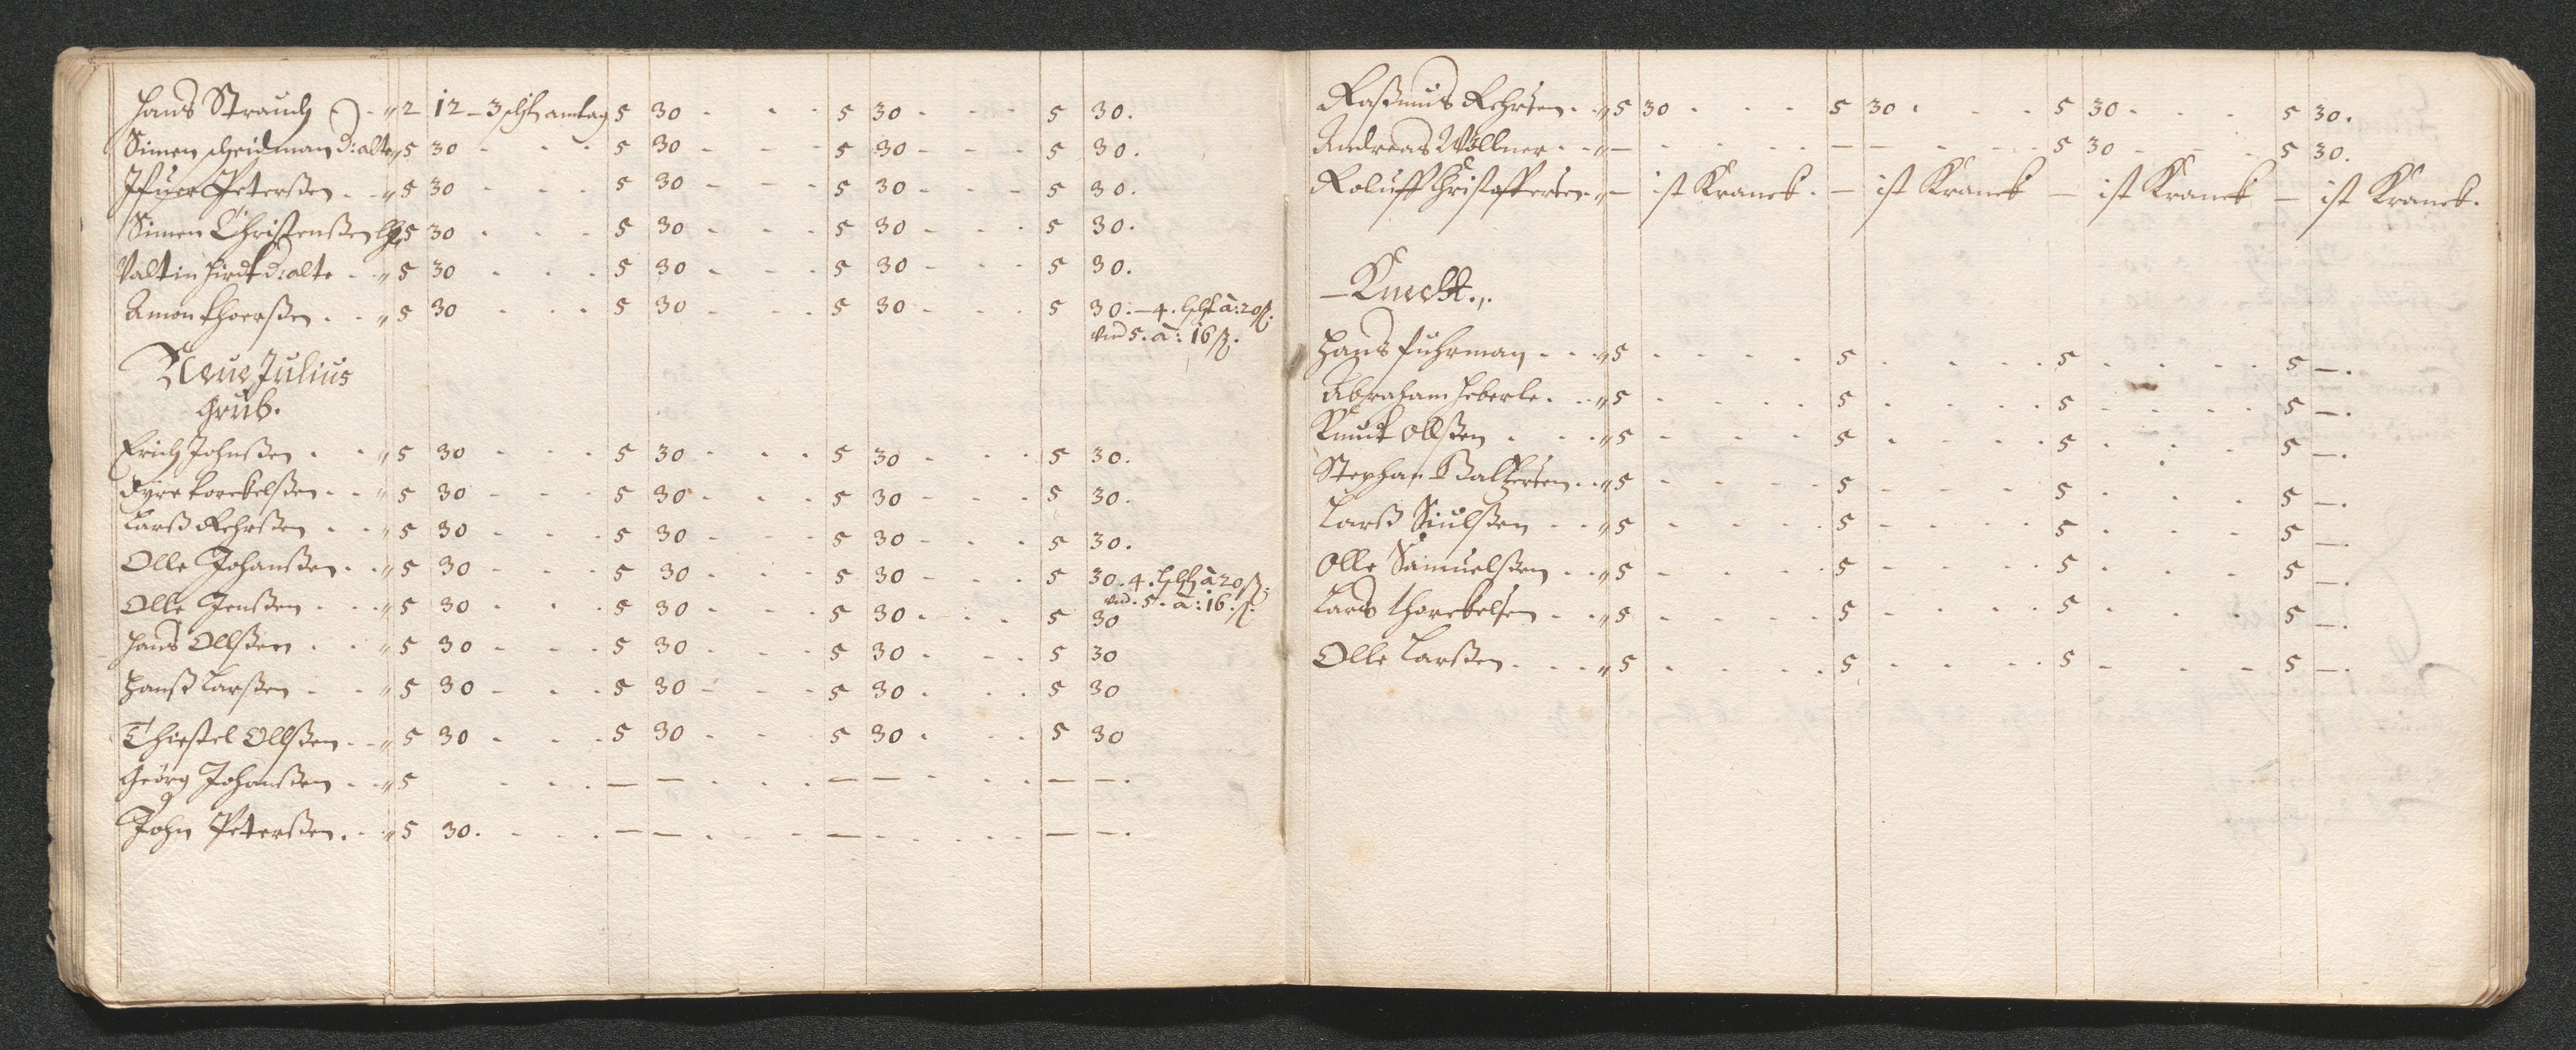 Hans Strauch - " 2 12 - 3 schl. amtag 5 30 - - 5 30 - - 5 30.
Simen Scheidman d: alte " 5 30 - - - 5 30 - - - 5 30 - - - 5 30.
Ifuer Peterßen - - " 5 30 - - - 5 30 - - - 5 30 - - - 5 30.
Simen Christenßen " 5 30 - - - 5 30 - - - 5 30 - - - 5 30.
Valtin Hirdt d: alte - - " 5 30 - - - 5 30 - - - 5 30 - - - 5 30.
Amon Thoerßen - - " 5 30 - - - 5 30 - - - 5 30 - - - 5 30. - 4. à: 20 ß.
vnd 5. à: 16 ß.
Neue Julius
Grub.
Erich Johnßen - - " 5 30 - - - 5 30 - - - 5 30 - - - 5 30.
Gyre Torckelßen - - " 5 30 - - - 5 30 - - - 5 30 - - - 5 30.
Larß Rehrßen - - " 5 30 - - - 5 30 - - - 5 30 - - - 5 30.
Olle Johanßen - - " 5 30 - - - 5 30 - - - 5 30 - - - 5 30. 4. à 20 ß.
vnd. 5. à: 16. ß.
Olle Jenßen - - - " 5 30 - - - 5 30 - - - 5 30 - - - 5 30
Hans Ollßen - - " 5 30 - - - 5 30 - - - 5 30 - - - 5 30
Hanß Larßen - - " 5 30 - - - 5 30 - - - 5 30 - - - 5 30
Thiestel Ollßen - - " 5 30 - - - 5 30 - - - 5 30 - - - 5 30
Geörg Johanßen - - " 5 - - - — — - - - — — - - - — —.
John Peterßen - - " 5 30. - - - — — - - - — — - - - — —.
Raßmus Rehrsen - - " 5 30 - - - 5 30 - - - 5 30 - - - 5 30.
Andreas Wöllner - - " — - - - - — — - - - 5 30 - - - 5 30.
Roluff Christoffersen - " — ist Kranck. — ist Kranck — ist Kranck — ist Kranck.
- Knecht.
Hans Fuhrman - - - " 5 - - - - 5 - - - - 5 - - - - 5 —.
Abraham Heberle - - " 5 - - - - 5 - - - - 5 - - - - 5 —.
Knut Ollßen - - - " 5 - - - - 5 - - - - 5 - - - - 5 —.
Stephan Baltzersen - - " 5 - - - - 5 - - - - 5 - - - - 5 —.
Larß Siulßen - - " 5 - - - - 5 - - - - 5 - - - - 5 —.
Olle Samuelßen - - " 5 - - - - 5 - - - - 5 - - - - 5 —.
Lars Thorckelsen - - " 5 - - - - 5 - - - - 5 - - - - 5 —.
Olle Larßen - - - " 5 - - - - 5 - - - - 5 - - - - 5 —.